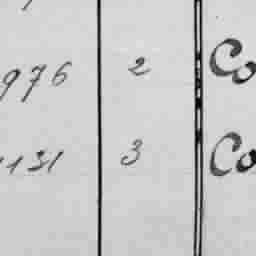 976 2 Co
1131 3 Co